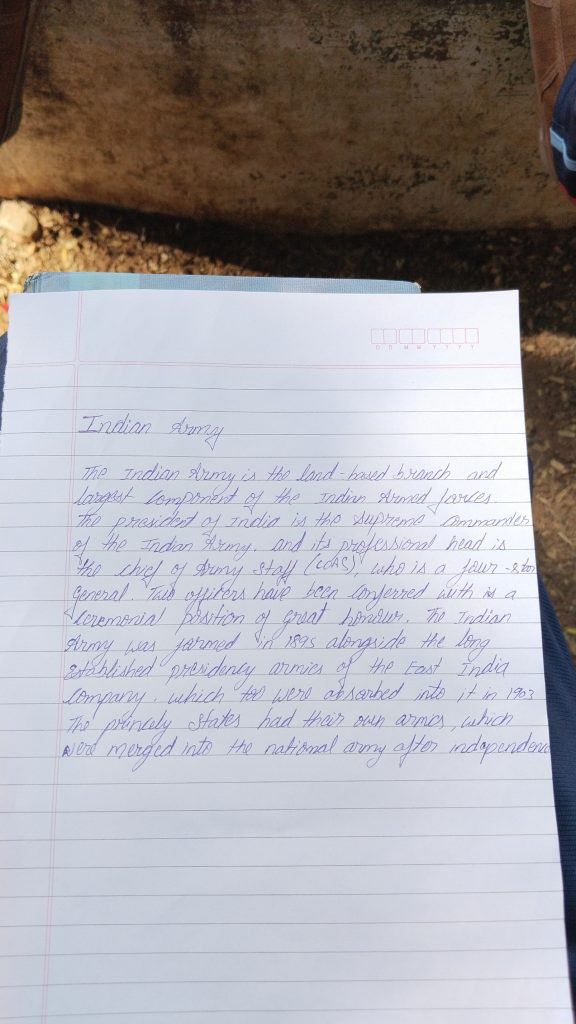 D D M M Y Y Y Y
Indian Army
The Indian Army is the land-based branch and
largest component of the Indian Armed forces.
The president of India is the supreme commander
of the Indian Army. and its professional head is
the chief of Army Staff (COAS), who is a four-star
general. Two officers have been conferred with is a
ceremonial position of great honour. The Indian
Army was formed in 1895 alongside the long
established presidency armies of the East India
company. which too were absorbed into it in 1903
The princely states had their own armies, which
were merged into the national army after independence